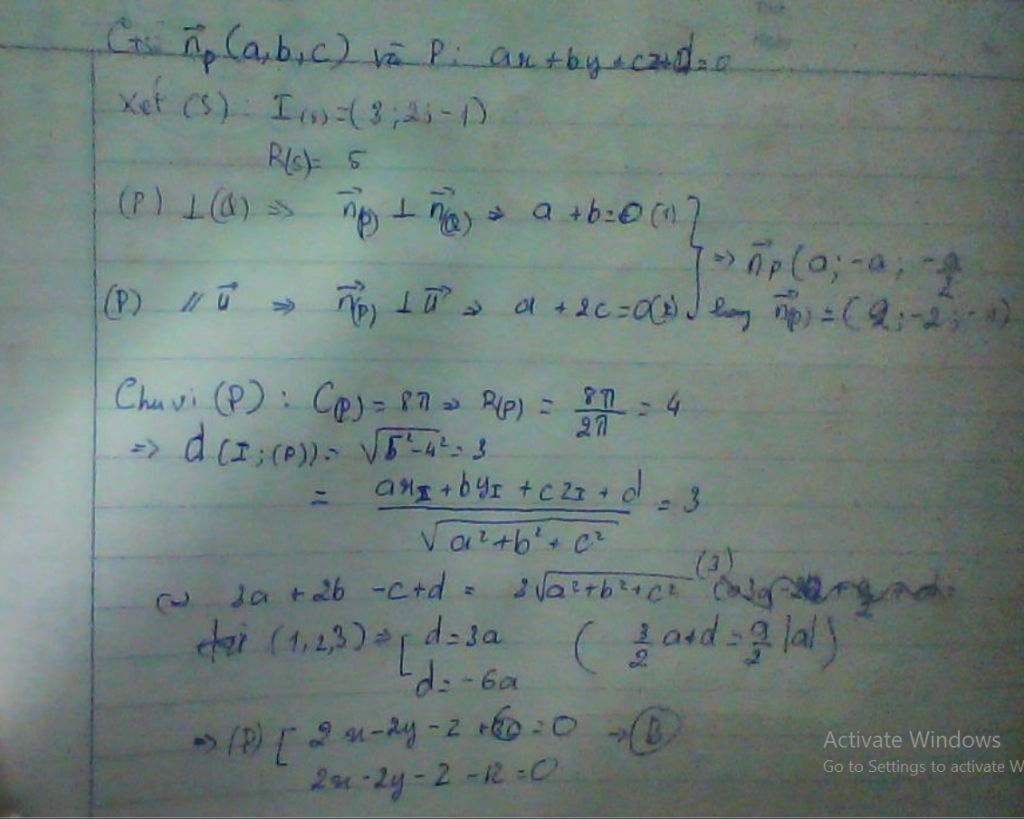 Gs: n⃗p (a,b,c) và P: ax+by+cz+d=0
Xét (S): I(S)=(3;2;-1)
R(S)= 5
(P) ⊥(Q) => n⃗(P) ⊥ n⃗(Q) => a+b=0 (1)
=> n⃗p (a; -a; -a/2
(P) // u⃗ => n⃗(P) ⊥ u⃗ => a + 2c=0(2) hay n⃗(P) = (2;-2;-1)
Chu vi (P): C(P) = 8π => R(P) = 8π/2π = 4
=> d(I;(P)) = √5²-4² = 3
= axI+byI+czI+d/√a²+b²+c² = 3
<=> 3a + 2b -c+d = 3√a²+b²+c² (3)
từ (1,2,3) => [ d=3a ( 3/2 a+d = 9/2 |a| )
d=-6a
=> (P) [ 2x-2y-z+6=0 -> B
2x-2y-z-12=0
Activate Windows
Go to Settings to activate W